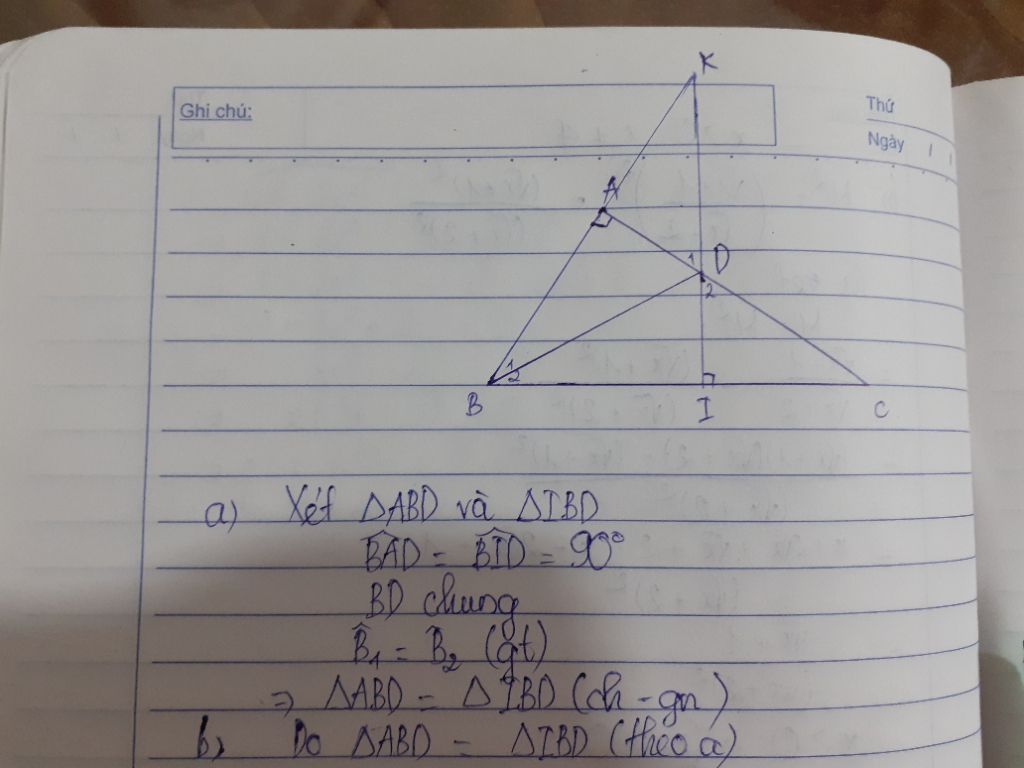 K
Ghi chú:
Thứ
Ngày / /
A
1 D
2
1
2
B I C
a) Xét ΔABD và ΔIBD
B̂AD = B̂ID = 90°
BD chung
B̂1 = B2 (gt)
=> ΔABD = ΔIBD (ch - gn)
b) Do ΔABD = ΔIBD (theo a)